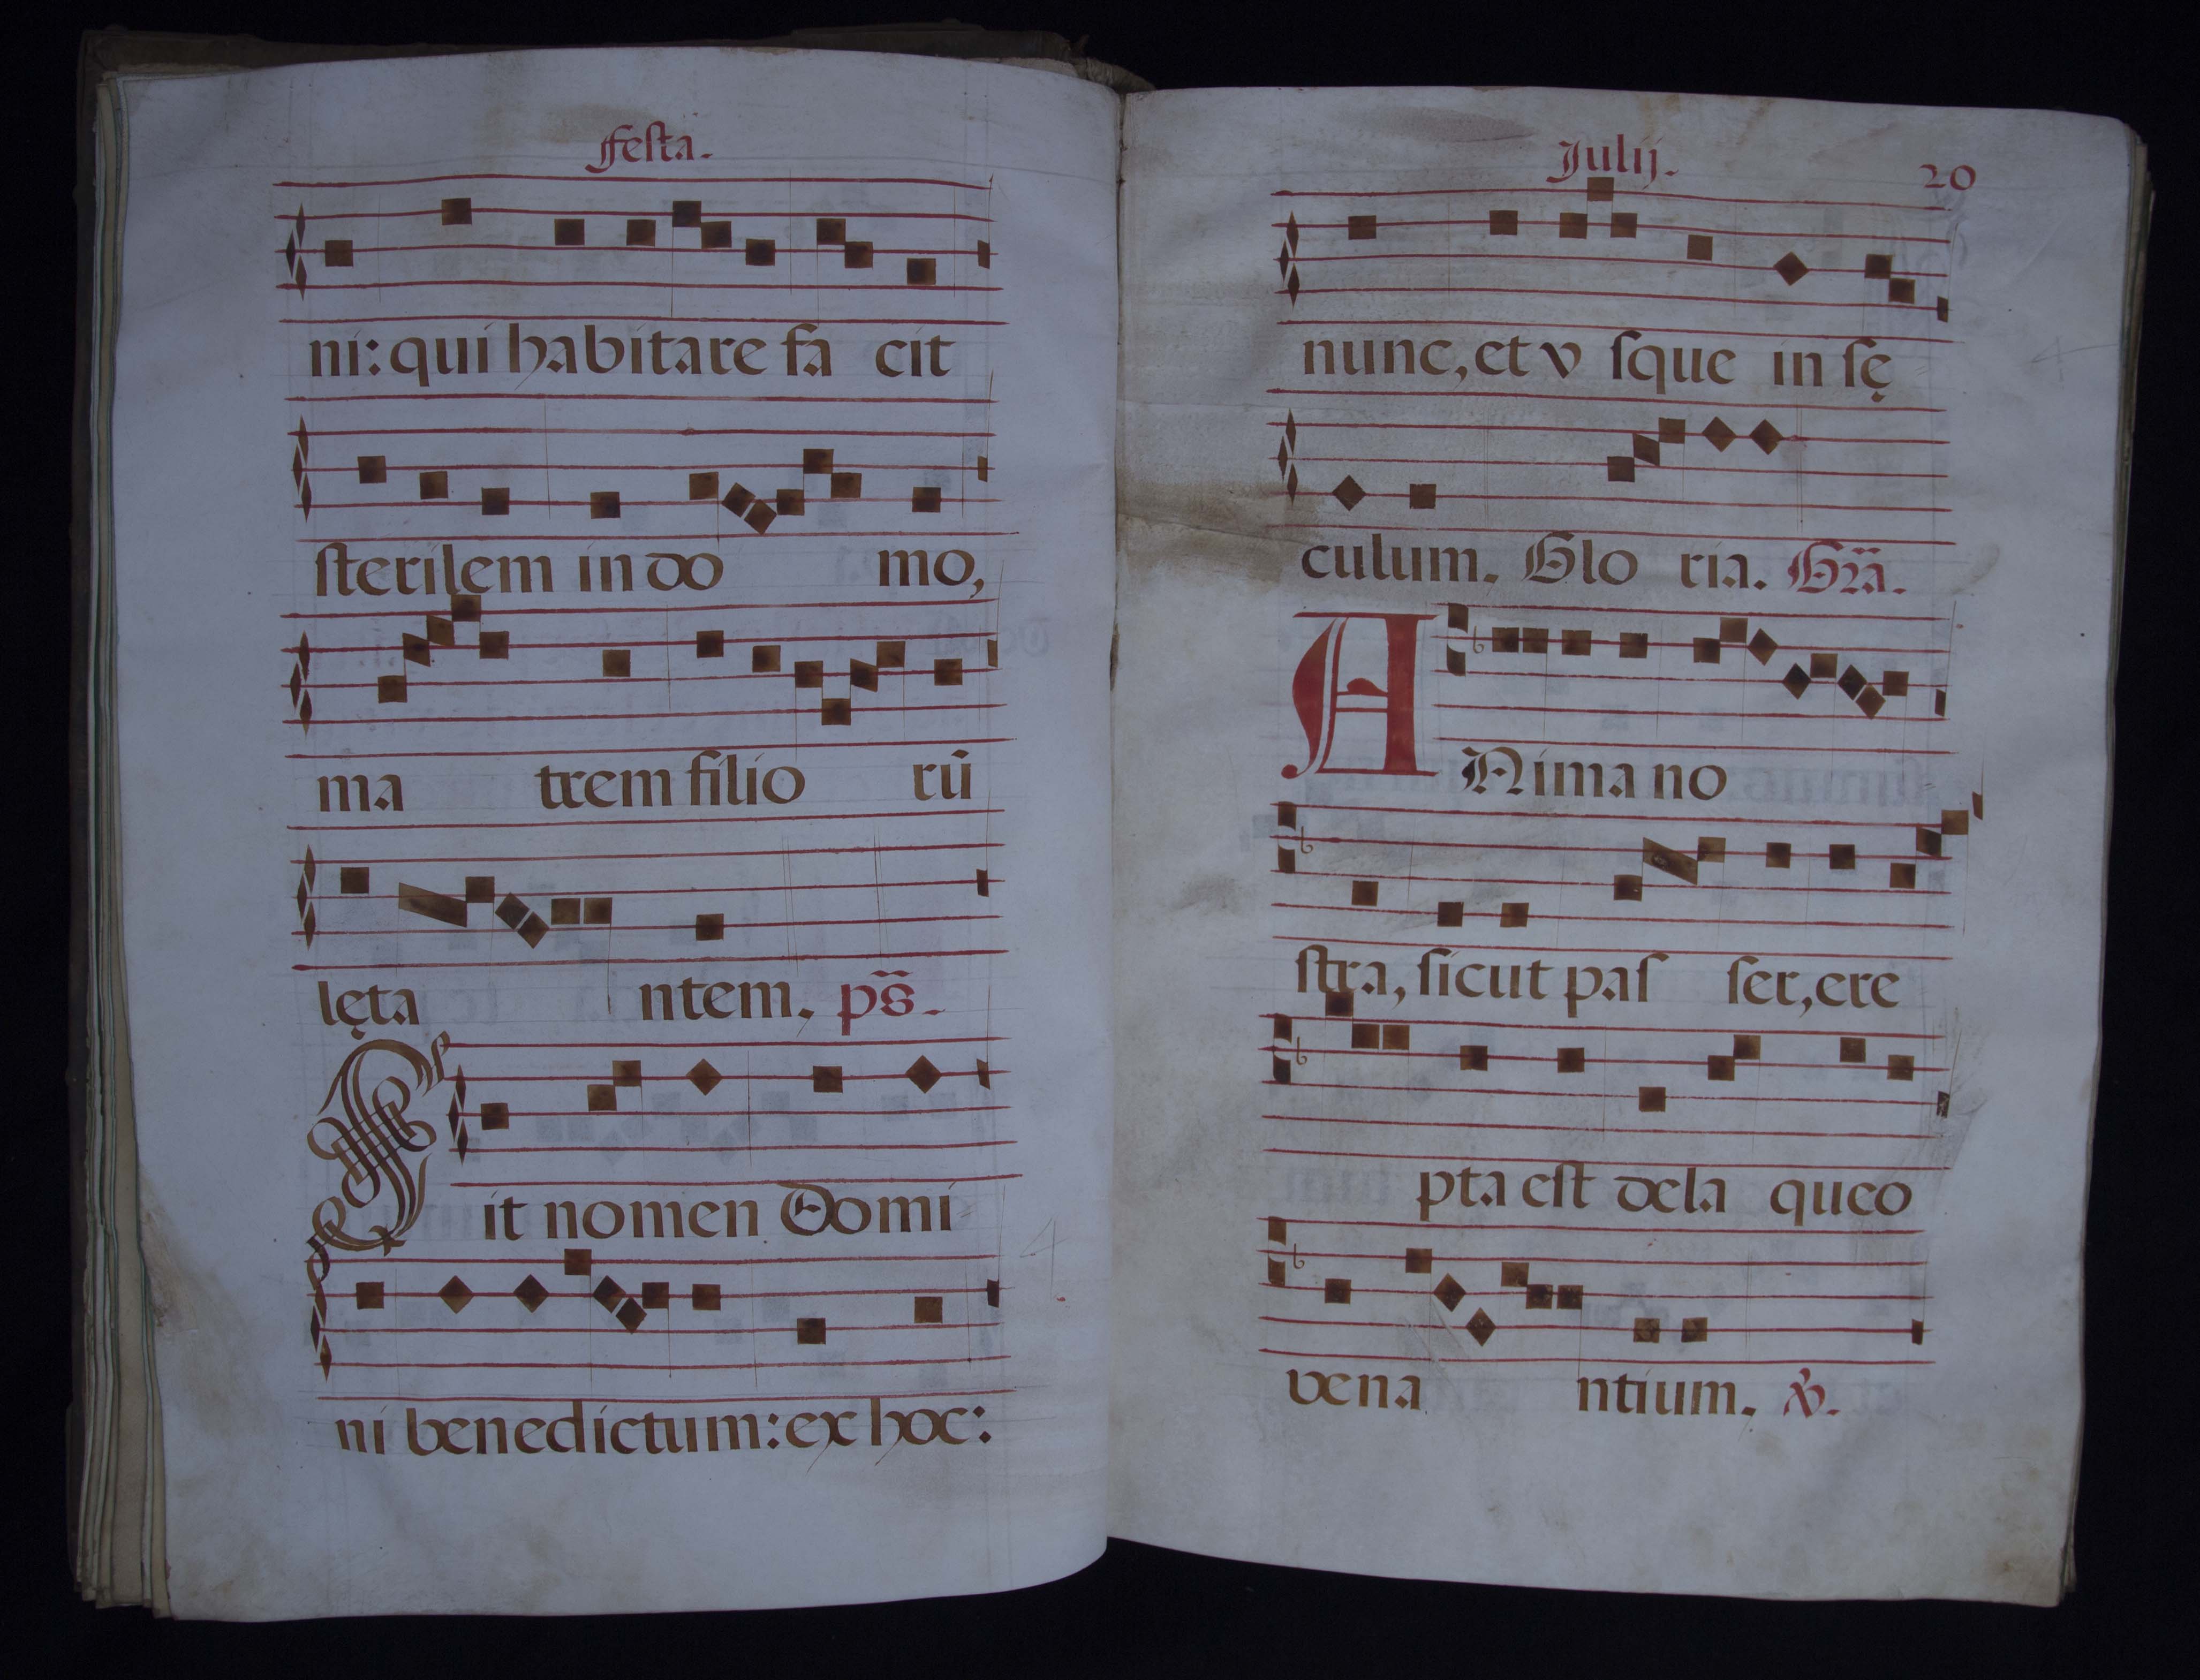 festa.
ni: qui habitare fa cit
sterilem in do mo,
ma trem filio rū
lęta ntem. ps̈.
Sit nomen Domi
ni benedictum: ex hoc:
Julij. 20
nunc, et v sque in sę
culum. Glo ria. Gra̅.
ANima no
stra, sicut pas ser, ere
pta est de la queo
vena ntium. ℣.